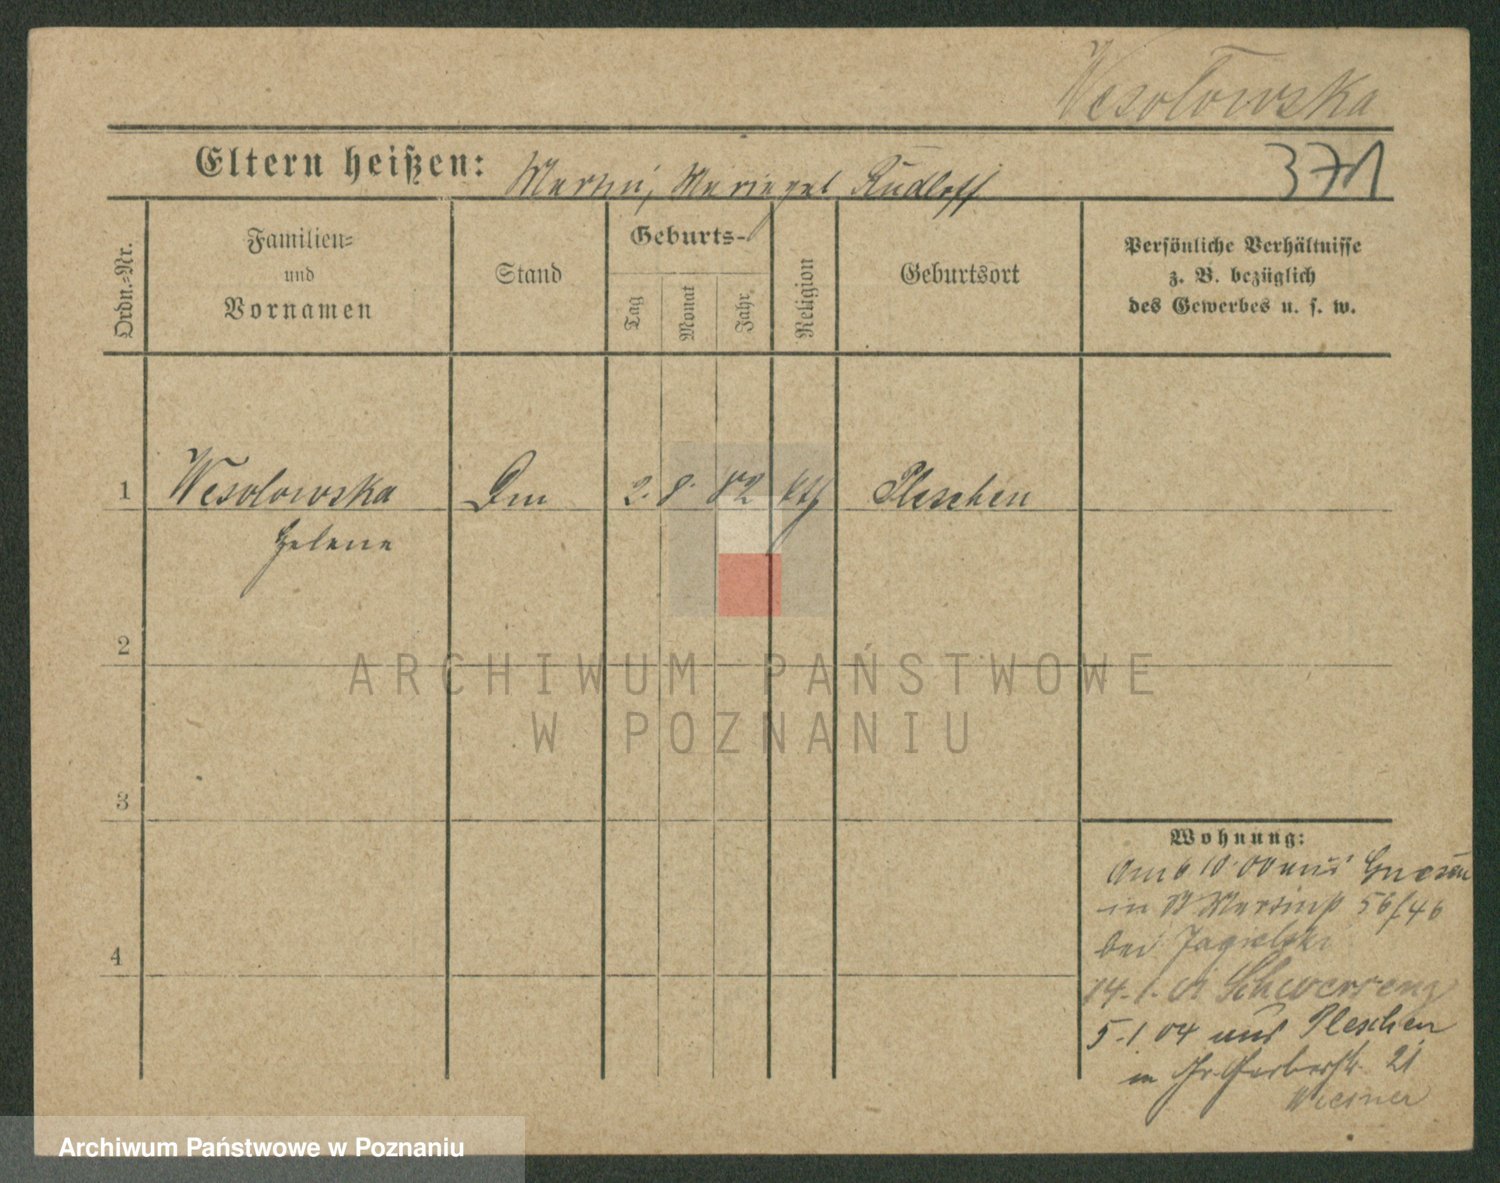 Wesołowska
Eltern heißen: Martin, Rudloff
371
Ordn.-Nr.
Familien=
und
Vornamen
Stand
Geburts-
Tag
Monat
Jahr
Religion
Geburtsort
Persönliche Verhältnisse
z. B. bezüglich
des Gewerbes u. s. w.
1 Wesolowska Dm 2. 8. 82 kth Pleschen
Helene
2
ARCHIWUM PAŃSTWOWE
W POZNANIU
3
4
Wohnung:
Am 6 10 00 aus Gnesen
in St Martinst 56/46
bei Jagielski
14-1-01 Schwersenz
5-1 04 aus Pleschen
in Gr. Gerberstr. 21
Wiesner
Archiwum Państwowe w Poznaniu